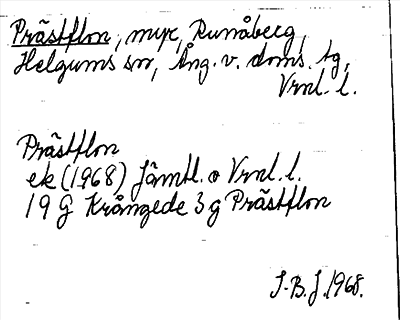 Prästflon, myr, Runåberg,
Helgums sn, Ång. v. doms. tg,
Vrnl. l.
Prästflon
ek (1968) Jämtl. o Vrnl. l.
19 G Krångede 3 g Prästflon
S-B. J. 1968.